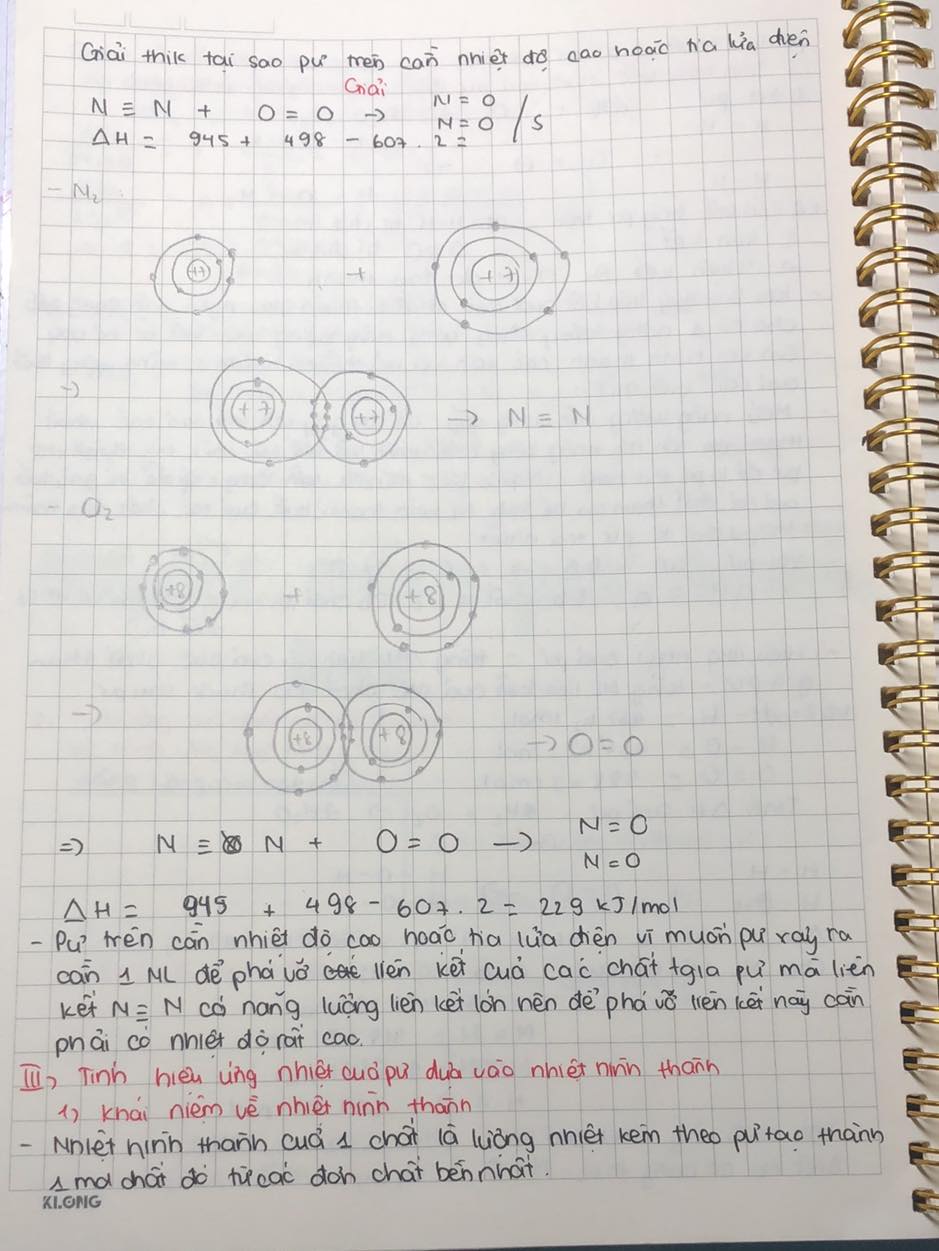 Giải thik tại sao pư trên cần nhiệt độ cao hoặc tia lửa điện
Giải
N ≡ N + O = O → N = O
N = O / S
ΔH = 945 + 498 - 607 . 2 =
- N₂ :
+7 + +7
→ +7 +7 → N ≡ N
- O₂
+8 + +8
→ +8 +8 → O = O
⇒ N ≡ N + O = O → N = O
N = O
ΔH = 945 + 498 - 607 . 2 = 229 kJ/mol
- Pư trên cần nhiệt độ cao hoặc tia lửa điện vì muốn pư xảy ra
cần 1 NL để phá vỡ các liên kết của các chất tgia pư mà liên
kết N ≡ N có năng lượng liên kết lớn nên để phá vỡ liên kết này cần
phải có nhiệt độ rất cao.
III, Tính hiệu ứng nhiệt của pư dựa vào nhiệt hình thành
1, Khái niệm về nhiệt hình thành
- Nhiệt hình thành của 1 chất là lượng nhiệt kèm theo pư tạo thành
1 mol chất đó từ các đơn chất bền nhất.
KLONG